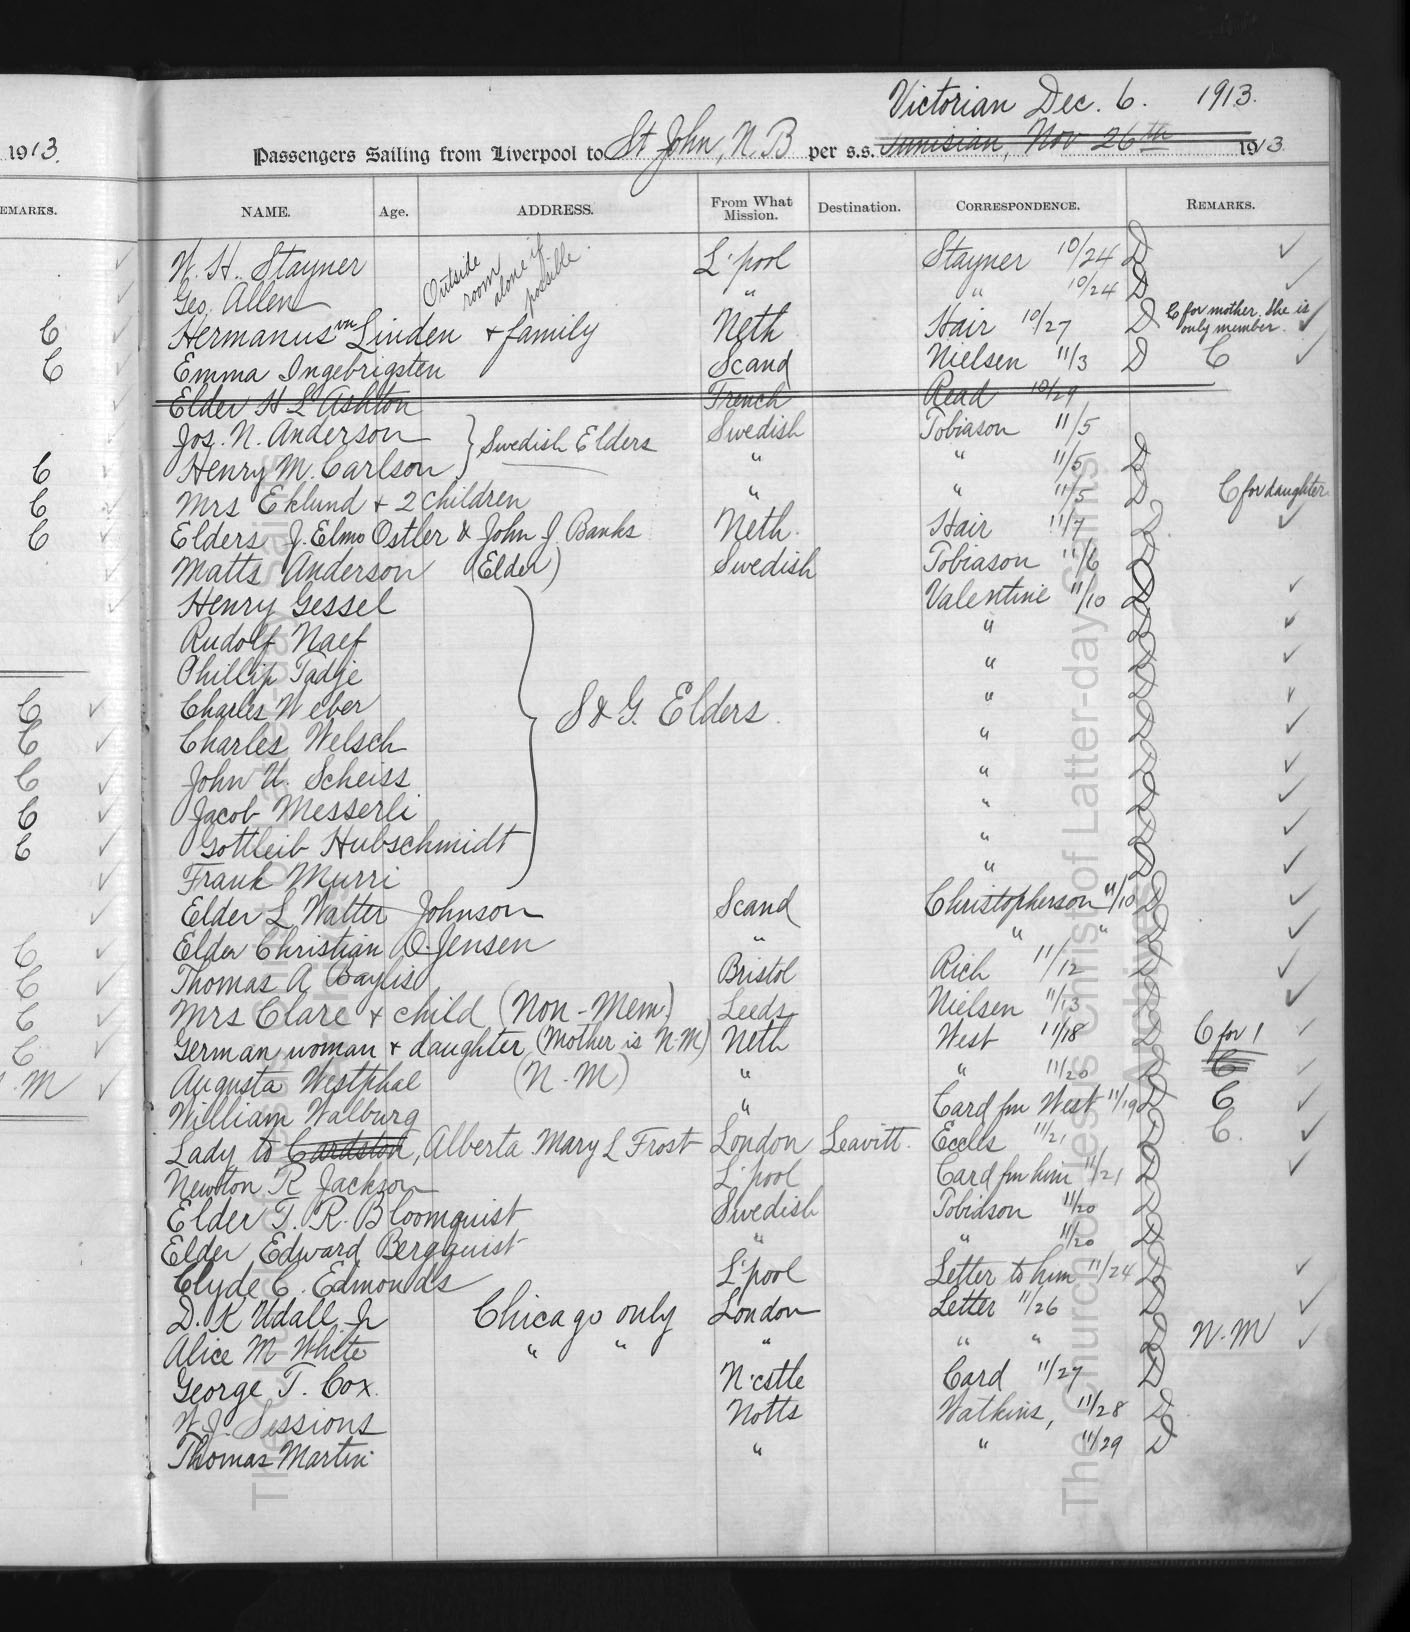 Victorian Dec. 6. 1913.
1913.
Passengers Sailing from Liverpool to St John, N.B per s.s. Tunisian, Nov 26th 1913
EMARKS.
NAME. Age. ADDRESS. From What Mission. Destination. CORRESPONDENCE. REMARKS.
W. H. Stayner Outside room alone if possible. L'pool Stayner 10/24 D ✓
Geo. Allen " " 10/24 D ✓
Hermanus vn Linden + family Neth Hair 10/27 D C for mother. She is only member. ✓
Emma Ingebrigsten Scand Nielsen 11/3 D C ✓
Elder H L Ashton French Read 10/29
Jos. N. Anderson } Swedish Elders Swedish Tobiason 11/5
Henry M. Carlson " " 11/5 D
Mrs Eklund + 2 children " " 11/5 D C for daughter
Elders J. Elmo Ostler & John J. Banks Neth. Hair 11/7 D ✓
Matts Anderson (Elder) Swedish Tobiason 11/6 D
Henry Gessel Valentine 11/10 D ✓
Rudolf Naef " D ✓
Phillip Tadje " D ✓
Charles Weber } S & G. Elders. " D ✓
Charles Welsch " D ✓
John U. Scheiss " D ✓
Jacob Messerli " D ✓
Gottleib Hubschmidt " D ✓
Frank Murri " D ✓
Elder L Walter Johnson Scand Christopherson 11/10 D ✓
Elder Christian O. Jensen " " " D ✓
Thomas A Bayliss Bristol Rich 11/12 D ✓
Mrs Clare + child (Non-Mem.) Leeds Nielsen 11/13 D ✓
German woman + daughter (Mother is N.M) Neth West 11/18 D C for 1 ✓
Augusta Westphal (N.M) " " 11/20 D C ✓
William Walburg " Card fm West 11/19 D C ✓
Lady to Cardston, Alberta Mary L Frost London Leavitt. Eccles 11/21 D C. ✓
Newton R Jackson L'pool Card fm him 11/21 D ✓
Elder T. R. Bloomquist Swedish Tobidson 11/20 D
Elder Edward Bergquist " " 11/20 D
Clyde C. Edmonds L'pool Letter to him 11/24 D ✓
D. K Udall Jr Chicago only London Letter 11/26 D ✓
Alice M White " " " " " D N-M ✓
George T. Cox. N'cstle Card 11/27 D
W. J. Sessions Notts Watkins, 11/28 D
Thomas Martin " " 11/29 D